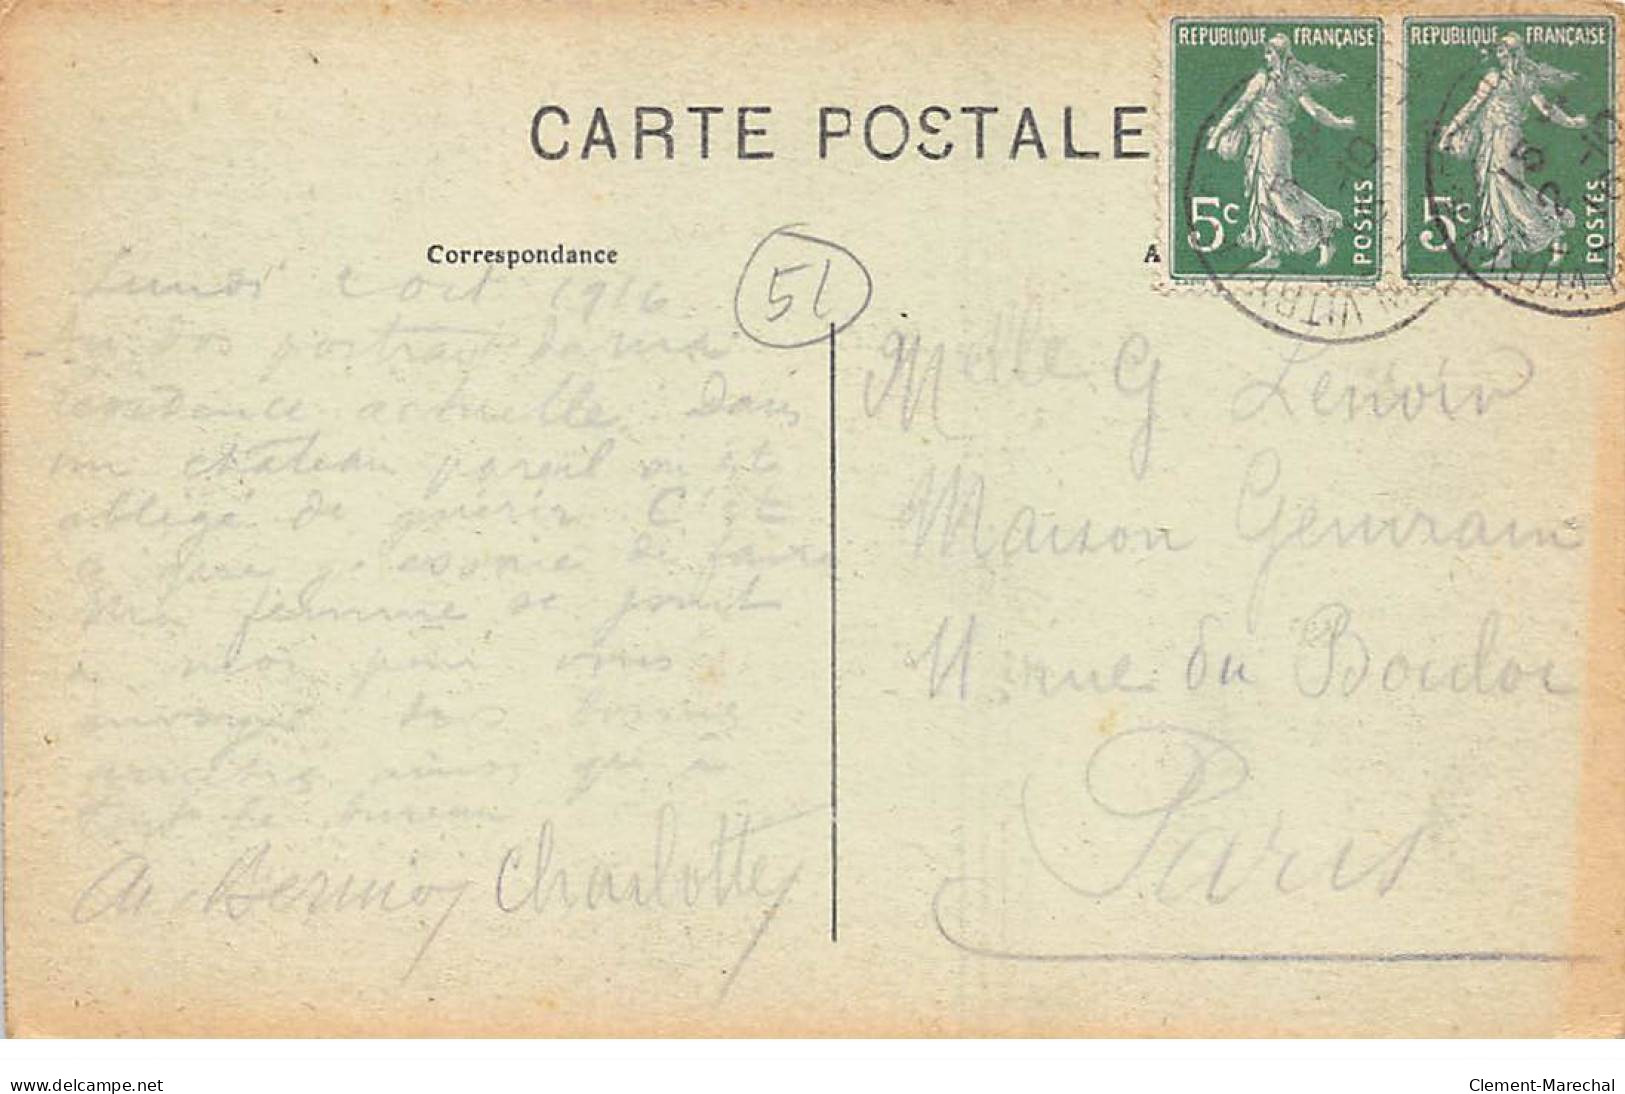 REPUBLIQUE FRANÇAISE
REPUBLIQUE FRANÇAISE
CARTE POSTALE
5c POSTES
5c POSTES
VITRY
Correspondance
A
51
Lundi 2 oct 1916
Au dos portrait de ma
résidence actuelle. Dans
un château pareil on est
obligé de guérir C'est
ce que j'essaie de faire
Ma femme se joint
à moi pour vous
envoyer nos bonnes
amitiés ainsi qu'à
tout le bureau
Charlotte
Melle G Lenoir
Maison
11 rue du Bouloi
Paris
delcampe.net
Clement-Marechal